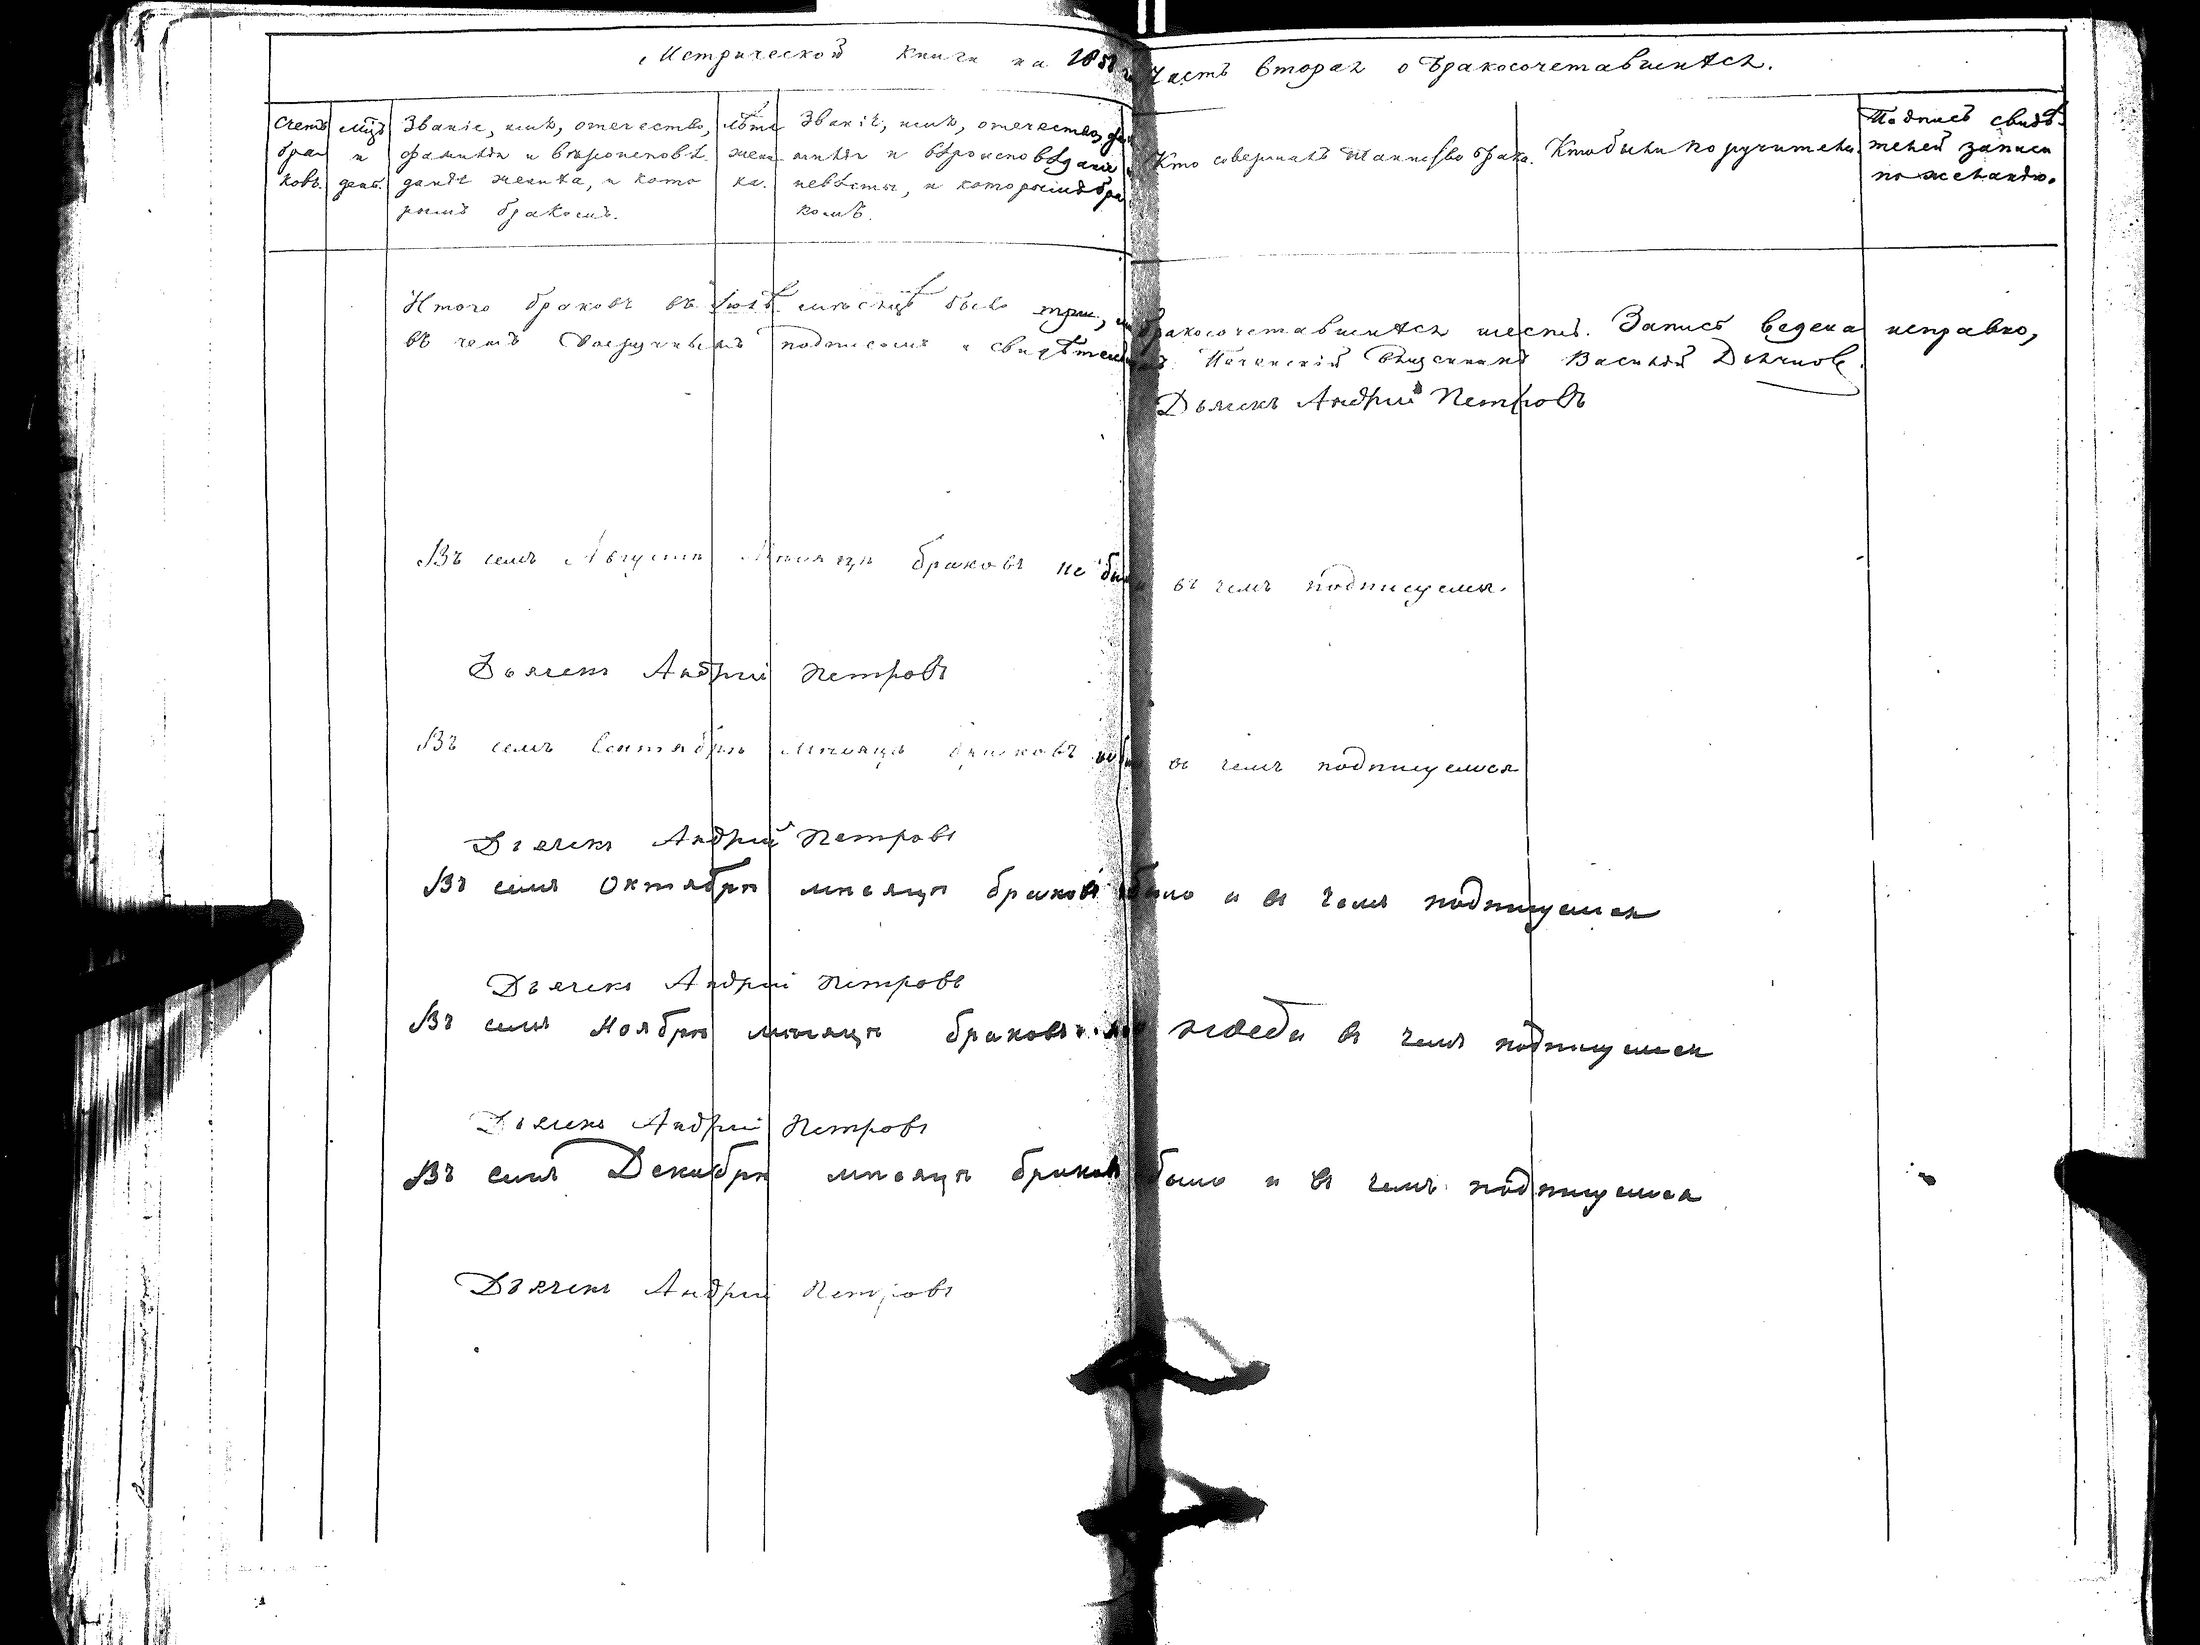 Метрической книги на 185
Часть вторая о бракосочетавшихся.
Счетъ бра ковъ.
мцъ и день.
Званіе, имя, отечество,
фамилія и вѣроисповѣ
даніе жениха, и кото
рымъ бракомъ.
лѣта жени ха.
Званіе, имя, отечество, фа
милія и вѣроисповѣданіе
невѣсты, и которымъ бра
комъ.
Кто совершалъ таинство брака.
Кто были поручители.
Подпись свидѣ
телей записи
по желанію.
Итого браковъ въ Іюлѣ мѣсяцѣ было три, бракосочетавшихся шесть. Запись ведена исправно,
въ чемъ подписомъ и Василій
Дьячекъ Андрей Петровъ
Въ семъ Августѣ Мѣсяцѣ браковъ не въ чемъ подписуемся.
Дьячекъ Андрей Петровъ
Въ семъ Сентябрѣ Мѣсяцѣ браковъ въ чемъ подписуемся
Дьячекъ Андрей Петровъ
Въ семъ Октябрѣ мѣсяцѣ браковъ было и въ чемъ подписуемся
Дьячекъ Андрей Петровъ
Въ семъ Ноябрѣ мѣсяцѣ браковъ въ чемъ подписуемся
Дьячекъ Андрей Петровъ
Въ семъ Декабрѣ мѣсяцѣ браковъ было и въ чемъ подписуемся
Дьячекъ Андрей Петровъ